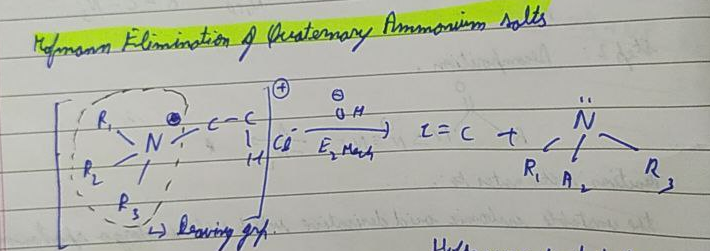 Hofmann Elimination of Quaternary Ammonium salts
R₁ N⊕ – C – C ⊕ Cl⊖ ⊖OH C = C + N̈
R₂ H E₂ Mech R₁ R₂ R₃
R₃
↳ leaving grp.